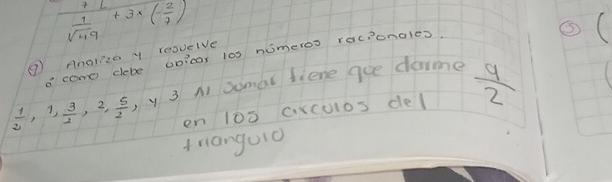 1/√49 + 3x(-2/7)
⑦ Analiza y resuelve
¿ como debe ubicar los números racionales.
1/2, 1, 3/2, 2, 5/2, y 3 Al sumar tiene que darme 9/2
en los circulos del
triangulo
⑤ (
(